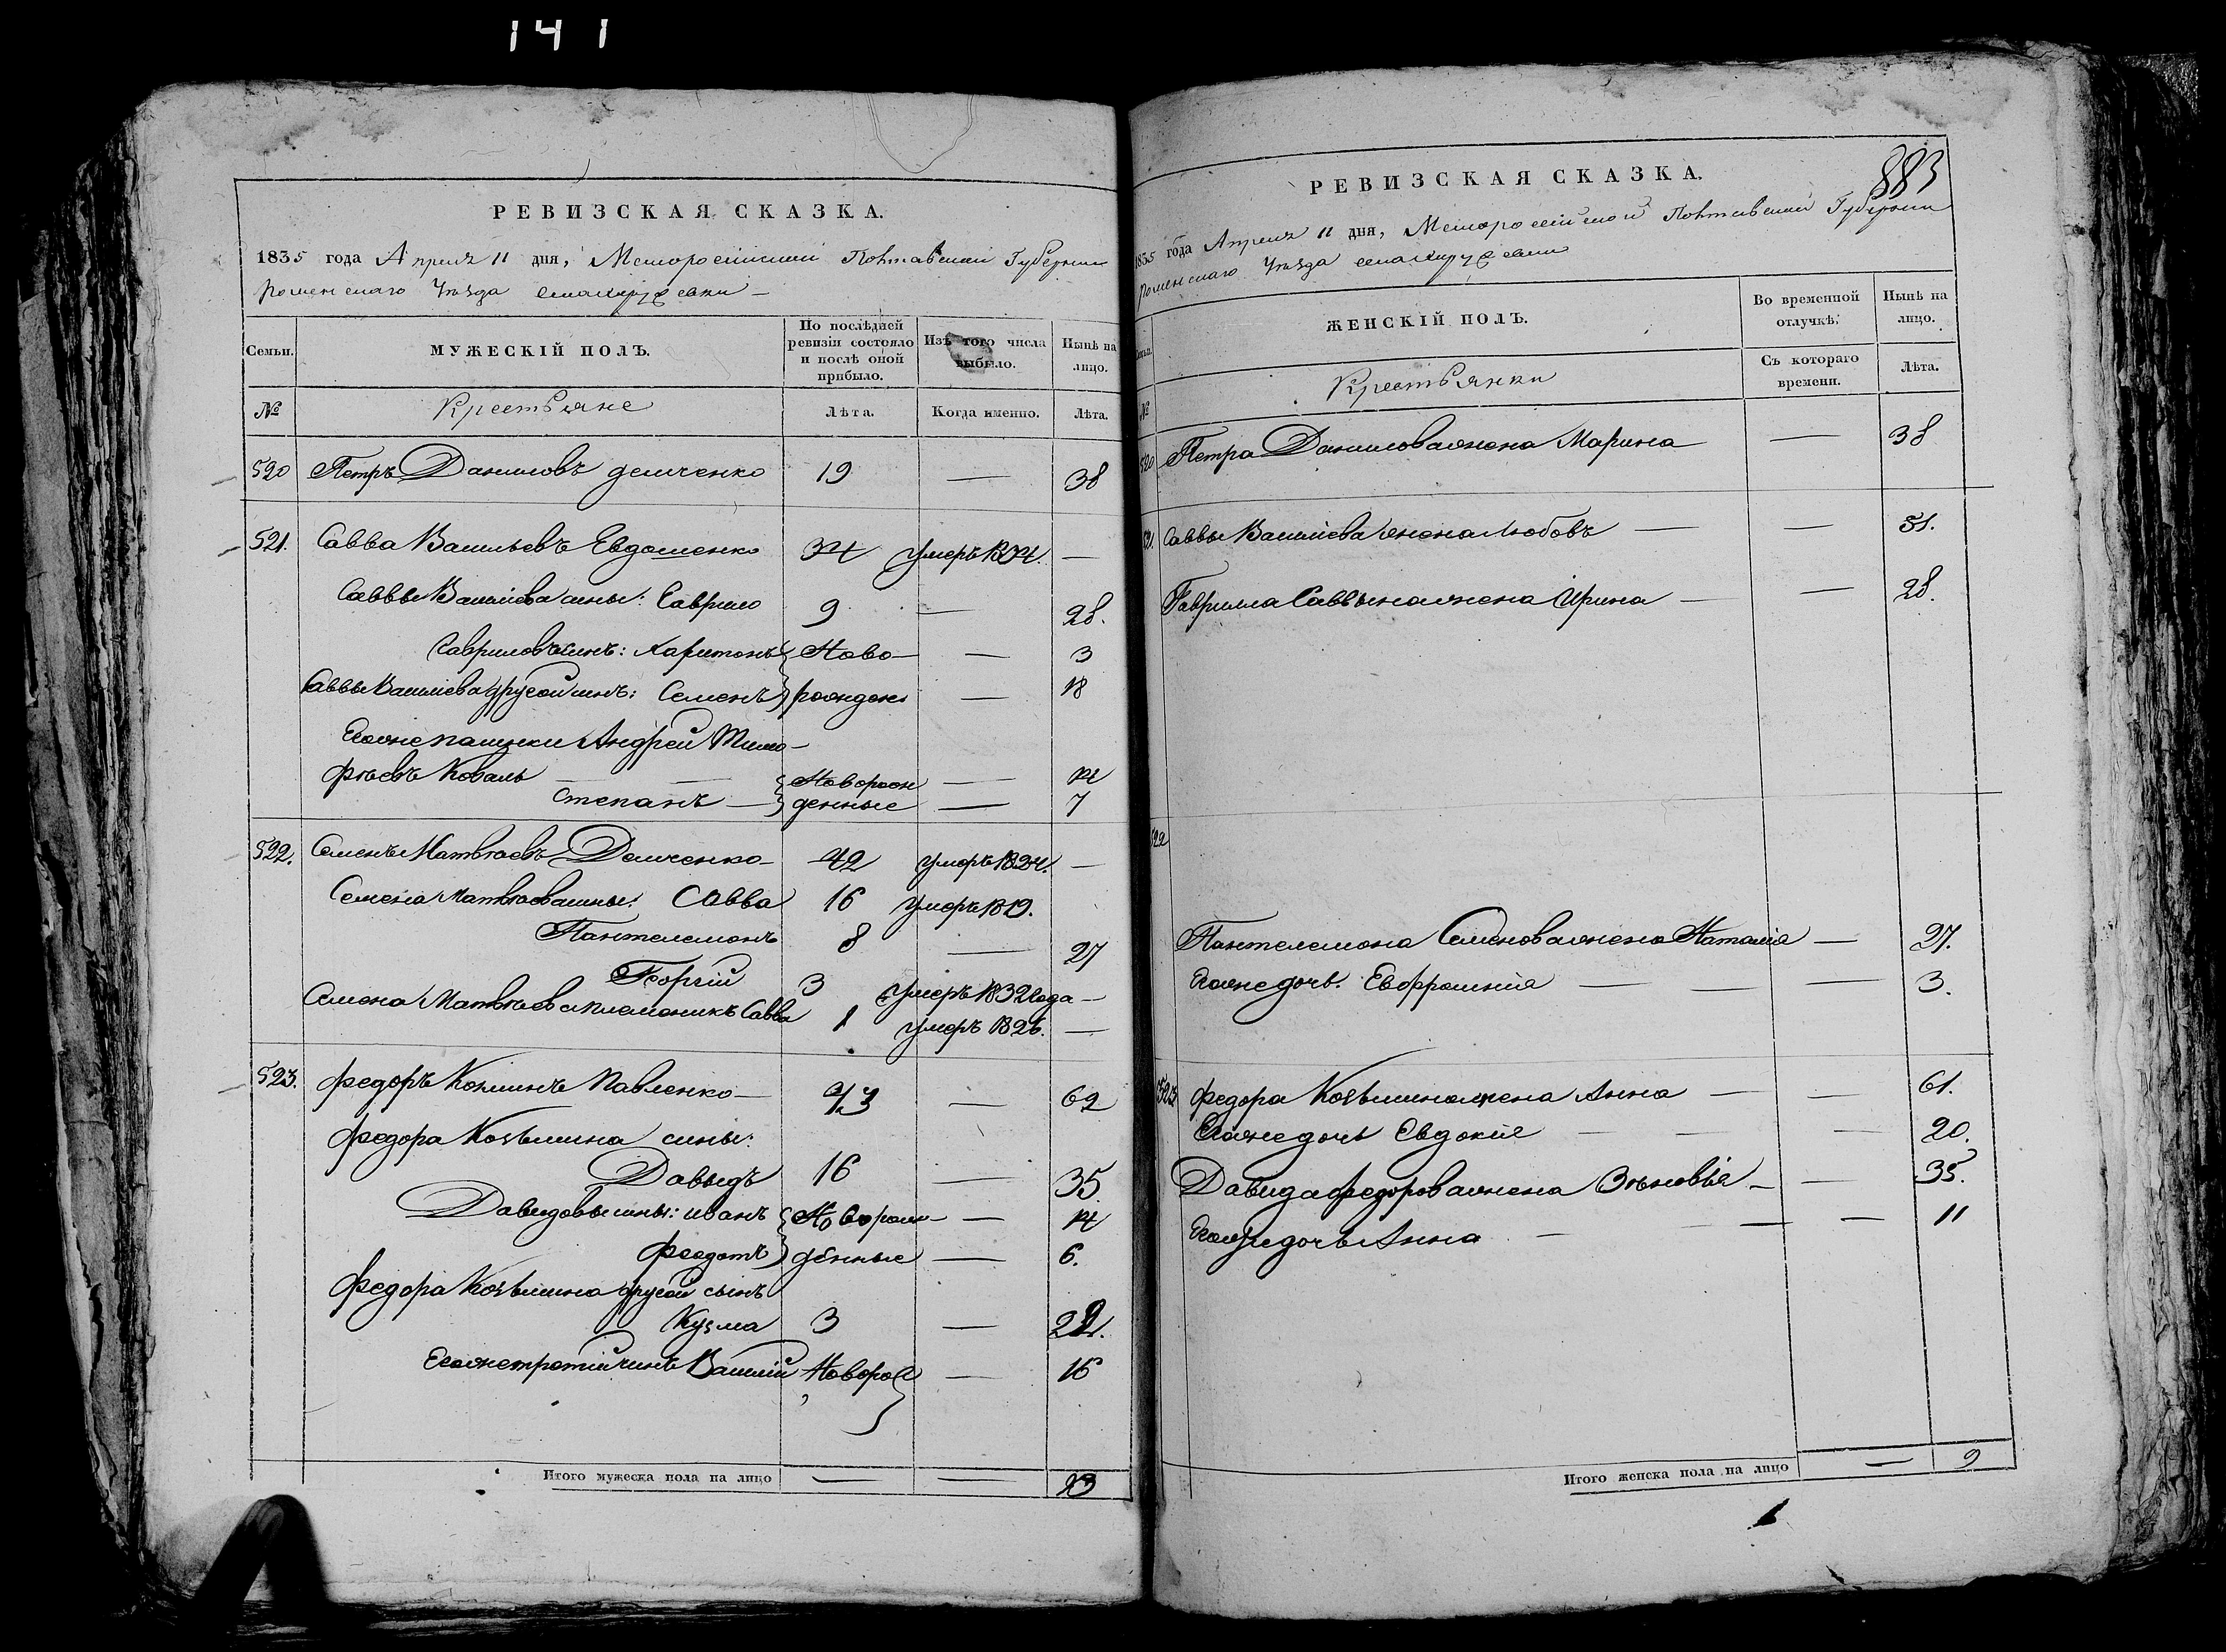 141
РЕВИЗСКАЯ СКАЗКА.
1835 года Апреля 11 дня, Малороссійской Полтавской Губерніи
Роменскаго Уѣзда села
Семьи.
МУЖЕСКІЙ ПОЛЪ.
По послѣдней ревизіи состояло и послѣ оной прибыло.
Изъ того числа выбыло.
Нынѣ на лицо.
№
Крестьяне
Лѣта.
Когда именно.
Лѣта.
520 Петръ Даниловъ Демченко 19 — 38
521. Савва Васильевъ Евдошенко 34 умеръ 1834. —
Саввы Василіева сыны: Гаврило 9 — 28.
Гавриловъ сынъ: Харитонъ Ново- — 3
Саввы Василіева другой сынъ: Семенъ рожден — 18
Егоже пасынки Андрей Тимо-
фѣевъ Коваль — —Новорож — 14
Степанъ — денные — 7
522. Семенъ Матвѣевъ Демченко 42 умеръ 1824. —
Семена Матвѣева сыны: Савва 16 умеръ 1819.
Пантелемонъ 8 — 27
Георгій 3 умеръ 1832 года —
Семена Матвѣева племеникъ Савва 1 умеръ 1826. —
523. Федоръ Козминъ Павленко — 43 — 62
Федора Козьмина сыны:
Давыдъ 16 — 35
Давидовы сыны: Иванъ Новорож- — 14
Феодотъ денные — 6.
Федора Козьмина другой сынъ
Кузма 3 — 22.
Егоже третій сынъ Василій Новорож — 16
Итого мужеска пола на лицо — — 13
883
РЕВИЗСКАЯ СКАЗКА.
1835 года Апреля 11 дня, Малороссійской Полтавской Губерніи
Роменскаго Уѣзда села
ЖЕНСКІЙ ПОЛЪ.
Во временной отлучкѣ.
Нынѣ на лицо.
№
Крестьянки
Съ котораго времени.
Лѣта.
520 Петра Данилова жена Марина — 38
521. Саввы Василіева жена Любовъ — — 51.
Гаврилла Саввына жена Ирина — — 28.
522
Пантелемона Семенова жена Наталія — 27.
Егоже дочь. Евфросинія — — — 3.
523 Федора Козьмина жена Анна — — 61.
Егоже дочь Евдокія — — — 20.
Давида Федорова жена Зѣновья — — 35.
Егоже дочь Анна — — — 11
Итого женска пола на лицо — 9